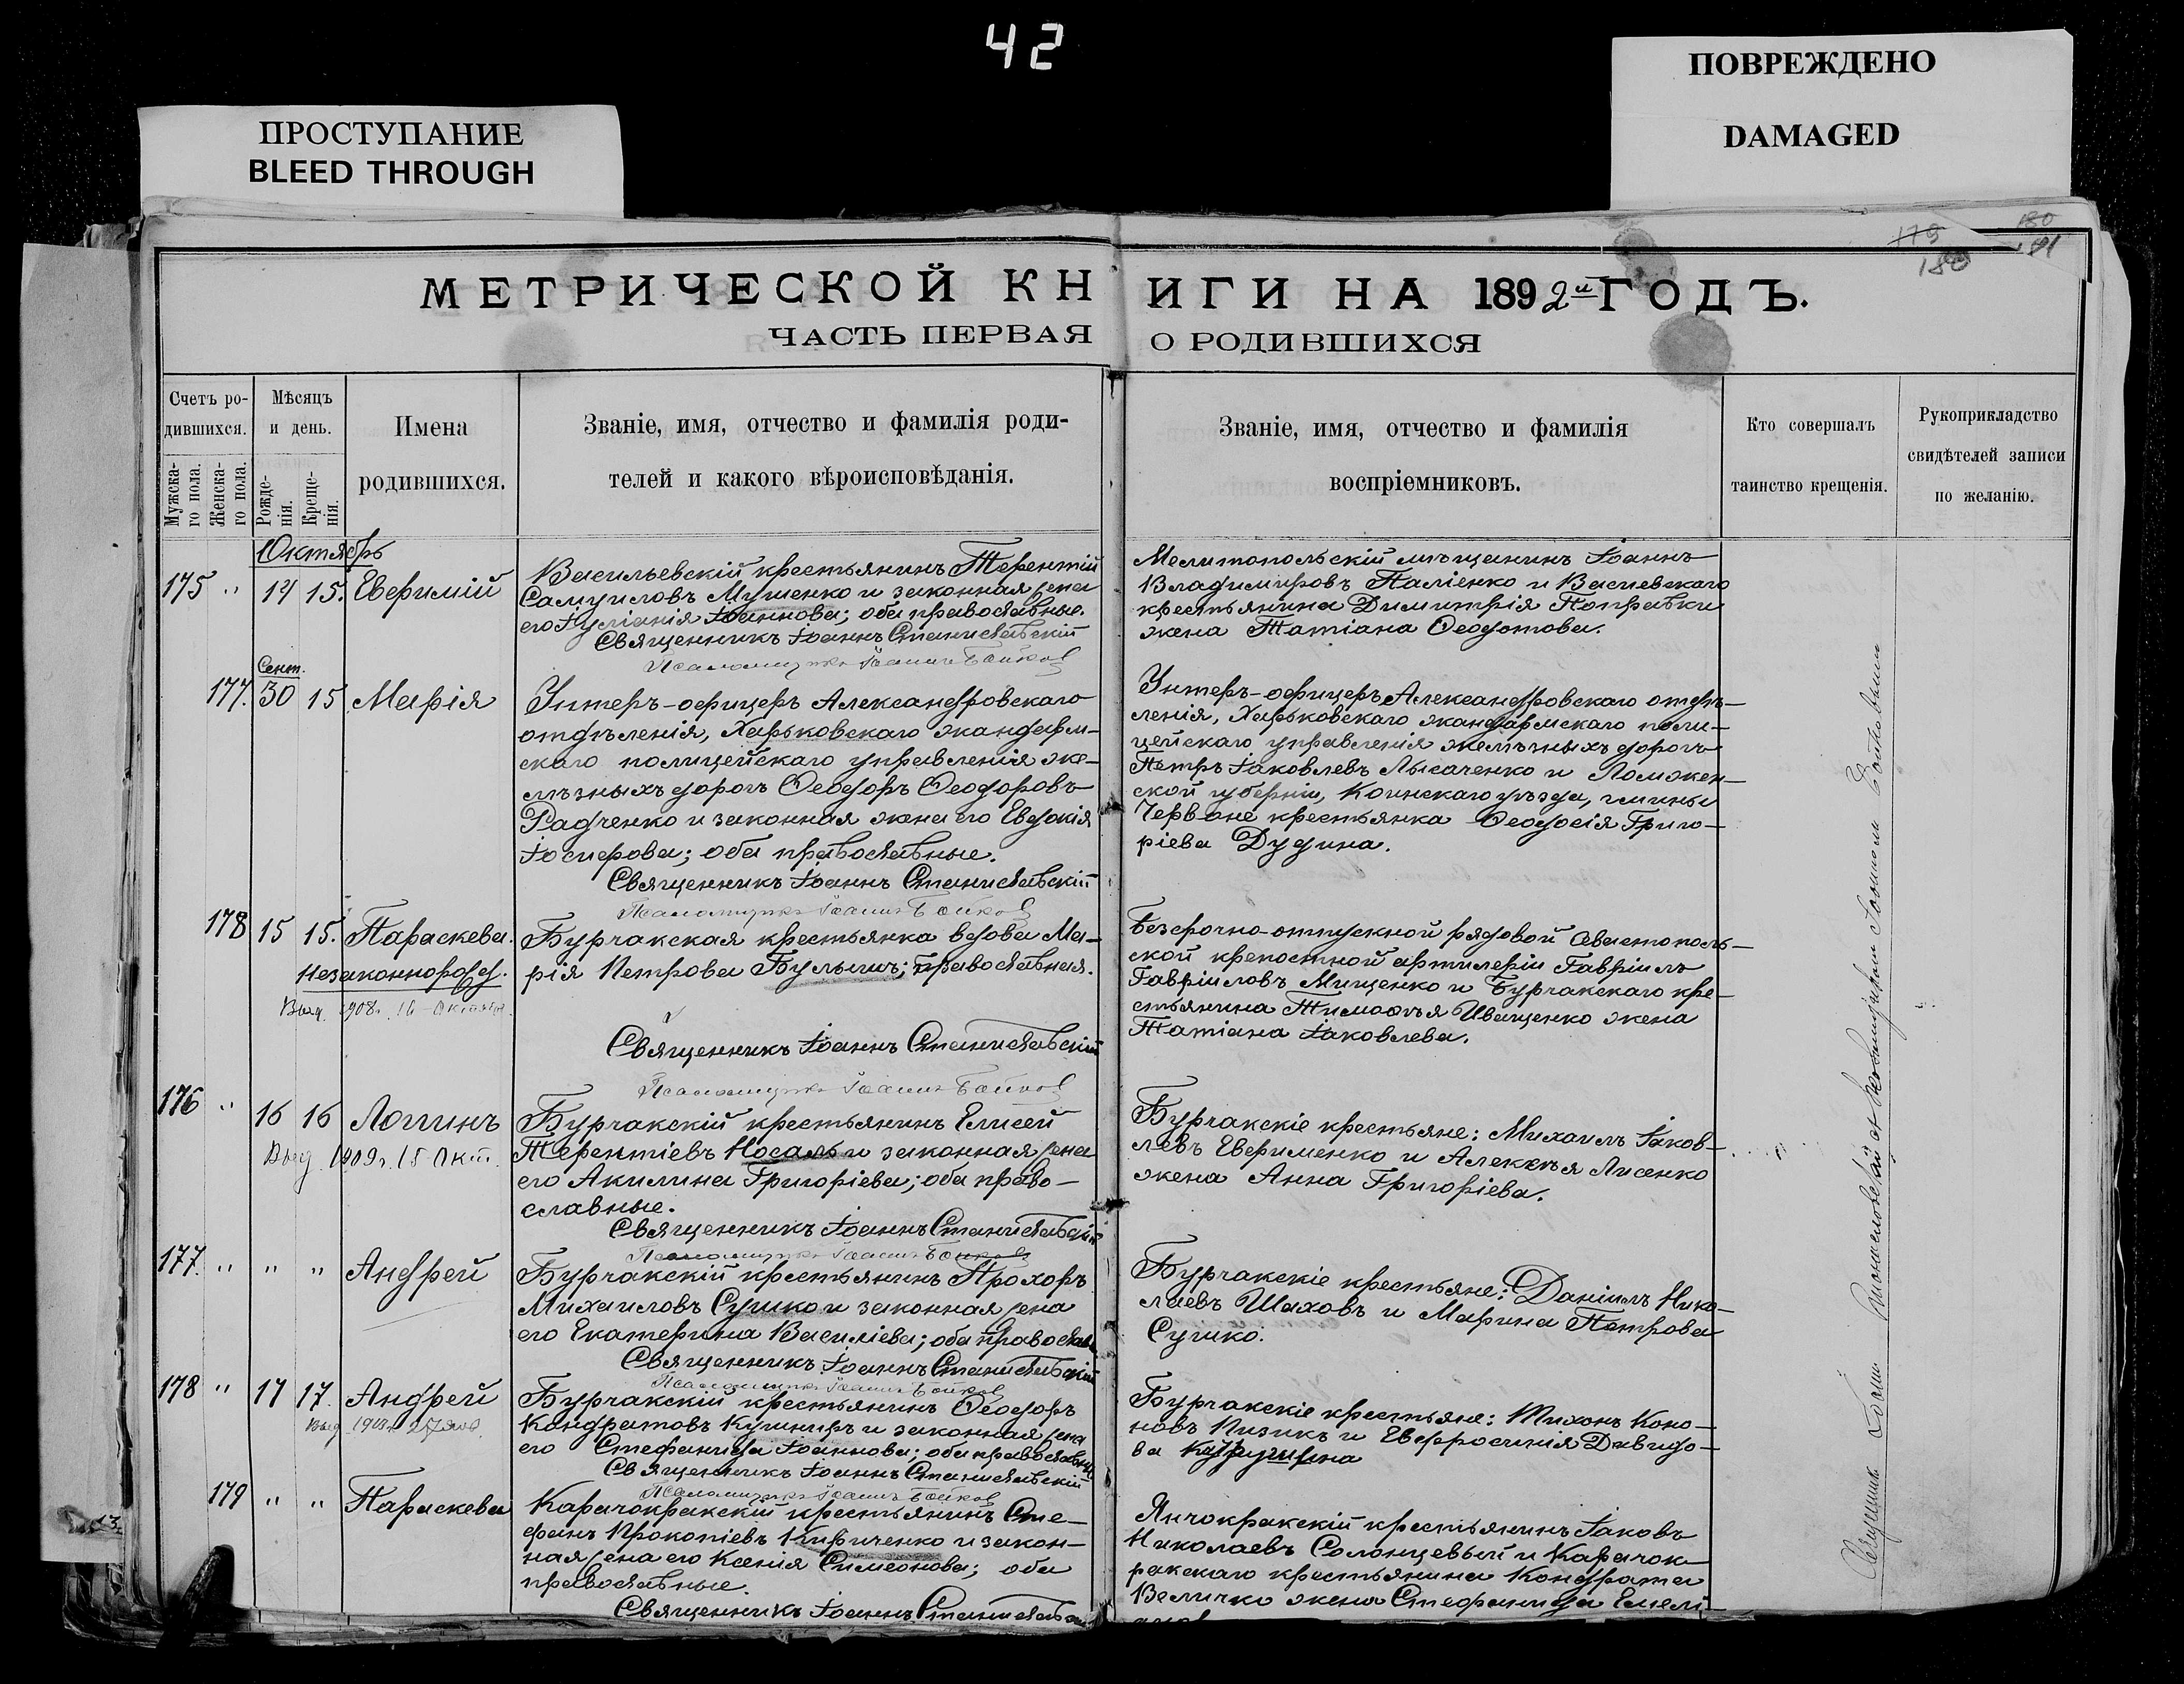 42
ПОВРЕЖДЕНО
DAMAGED
ПРОСТУПАНИЕ
BLEED THROUGH
179
180
180
181
МЕТРИЧЕСКОЙ КНИГИ НА 1892й ГОДЪ.
ЧАСТЬ ПЕРВАЯ О РОДИВШИХСЯ
Счетъ ро-
дившихся.
Мужска-
го пола.
Женска-
го пола.
Мѣсяцъ
и день.
Рожде-
нія.
Креще-
нія.
Имена
родившихся.
Званіе, имя, отчество и фамилія роди-
телей и какого вѣроисповѣданія.
Званіе, имя, отчество и фамилія
воспріемниковъ.
Кто совершалъ
таинство крещенія.
Рукоприкладство
свидѣтелей записи
по желанію.
Октябрь
175 " 14 15. Еверимій
Васильевскій крестьянинъ Терентій
Самуиловъ Мушенко и законная жена
его Іуліанія Іоаннова; оба православные.
Священникъ Іоаннъ Станиславскій
Псаломщикъ Іоаннъ Бойков
Мелитопольскій мѣщанинъ Іоаннъ
Владимировъ Паліенко и Васиевскаго
крестьянина Димитрія Поправки
жена Татіана Ѳеодотова.
Сент.
177. 30 15 Марія
Унтеръ-офицеръ Александровскаго
отдѣленія, Харьковскаго жандарм-
скаго полицейскаго управленія же-
лѣзныхъ дорогъ Ѳеодоръ Ѳеодоровъ
Радченко и законная жена его Евдокія
Іосифова; оба православные.
Священникъ Іоаннъ Станиславскій
Псаломщикъ Іоаннъ Бойков
Унтеръ-офицеръ Александровскаго отдѣ-
ленія, Харьковскаго жандармскаго поли-
цейскаго управленія желѣзныхъ дорогъ
Петръ Іаковлевъ Лысаченко и Ломжен-
ской губерніи, уѣзда, гмины
Червоне крестьянка Ѳеодосія Григо-
ріева Дудина.
178 15 15. Параскева.
Незаконнорожд.
Выд. 1908г. 16 Октября.
Бурчакская крестьянка вдова Ма-
рія Петрова Булыгъ; православная.
Священникъ Іоаннъ Станиславскій
Псаломщикъ Іоаннъ Бойков
Безсрочно-отпускной рядовой Севастополь-
ской крепостной артилеріи Гавріилъ
Гавріиловъ Мищенко и Бурчакскаго кре-
стьянина Тимоѳея Иващенко жена
Татіана Іаковлева.
176 " 16 16 Логгинъ
Выд. 1909г. 15 Окт.
Бурчакскій крестьянинъ Елисей
Терентіевъ Носаль и законная жена
его Акилина Григоріева; оба право-
славные.
Священникъ Іоаннъ Станиславскій
Псаломщикъ Іоаннъ Бойков
Бурчакскіе крестьяне: Михаилъ Іаков-
левъ Еверименко и Алексѣя Лисенко
жена Анна Григоріева.
177. " " " Андрей
Бурчакскій крестьянинъ Прохоръ
Михаиловъ Сушко и законная жена
его Екатерина Василіева; оба православ.
Священникъ Іоаннъ Станиславскій
Псаломщикъ Іоаннъ Бойков
Бурчакскіе крестьяне: Даніилъ Нико-
лаевъ Шаховъ и Марина Петрова
Сушко.
178 " 17 17. Андрей
Бурчакскій крестьянинъ Ѳеодоръ
Кондратовъ Кушниръ и законная жена
его Стефанида Іоаннова; оба православн.
Священникъ Іоаннъ Станиславскій
Псаломщикъ Іоаннъ Бойков
Бурчакскіе крестьяне: Тихонъ Коно-
новъ Пизикъ и Евфросинія Давидо-
ва
179 " " Параскева
Карачокракскій крестьянинъ Сте-
фанъ Прокопіевъ Кириченко и закон-
ная жена его Ксенія Симеонова; оба
православные.
Священникъ Іоаннъ Станиславскій
Янчокракскій крестьянинъ Іаковъ
Николаевъ Солонцевый и Карачок-
ракскаго крестьянина Кондрата
Величко жена Стефанида Емелі-
Священникъ Іоаннъ Станиславскій съ псаломщикомъ Іоанномъ Бойковымъ